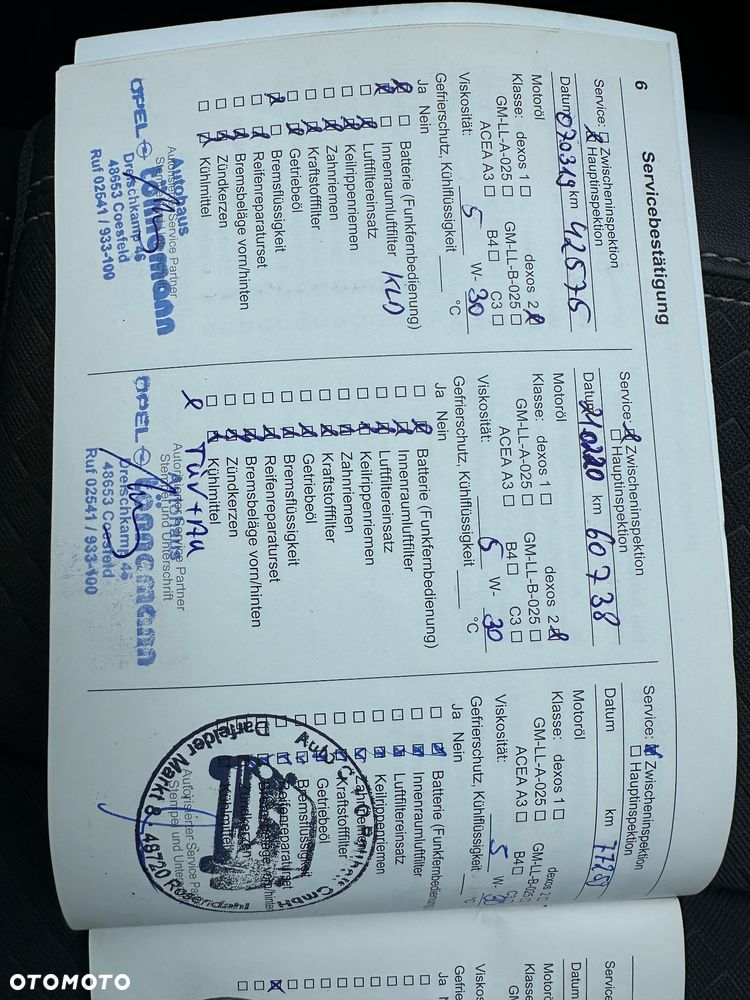 6
Servicebestätigung
Service: Zwischeninspektion
Hauptinspektion
Datum 070319 km 42575
Motoröl dexos 2
Klasse: dexos 1 GM-LL-B-025
GM-LL-A-025 B4 C3
ACEA A3
Viskosität: 5 W- 30
Gefrierschutz, Kühlflüssigkeit °C
Ja Nein
Batterie (Funkfernbedienung)
Innenraumluftfilter KLD
Luftfiltereinsatz
Keilrippenriemen
Zahnriemen
Kraftstofffilter
Getriebeöl
Bremsflüssigkeit
Reifenreparaturset
Bremsbeläge vorn/hinten
Zündkerzen
Kühlmittel
Autohaus
Service Partner
OPEL
Dreischkamp 46
48653 Coesfeld
Ruf 02541 / 933-100
Service: Zwischeninspektion
Hauptinspektion
Datum 210220 km 60738
Motoröl dexos 2
Klasse: dexos 1 GM-LL-B-025
GM-LL-A-025 B4 C3
ACEA A3
Viskosität: 5 W- 30
Gefrierschutz, Kühlflüssigkeit °C
Ja Nein
Batterie (Funkfernbedienung)
Innenraumluftfilter
Luftfiltereinsatz
Keilrippenriemen
Zahnriemen
Kraftstofffilter
Getriebeöl
Bremsflüssigkeit
Reifenreparaturset
Bremsbeläge vorn/hinten
Zündkerzen
Kühlmittel
TÜV + AU
Service Partner
Stempel und Unterschrift
OPEL
Dreischkamp 46
48653 Coesfeld
Ruf 02541 / 933-100
Service: Zwischeninspektion
Hauptinspektion
Datum km
Motoröl dexos 2
Klasse: dexos 1 GM-LL-B-025
GM-LL-A-025 B4
ACEA A3
Viskosität: 5 W-
Gefrierschutz, Kühlflüssigkeit
Ja Nein
Batterie (Funkfernbedienung
Innenraumluftfilter
Luftfiltereinsatz
Keilrippenriemen
Zahnriemen
Kraftstofffilter
Getriebeöl
Bremsflüssigkeit
Reifenreparaturset
vorn/hinten
Zündkerzen
Kühlmittel
Autorisierter Service Pa
Stempel und Unter
GmbH
Darfelder Markt 8 · 48720
Service:
Datum
Motoröl
Klasse:
Viskos
Gefrie
Ja N
OTOMOTO